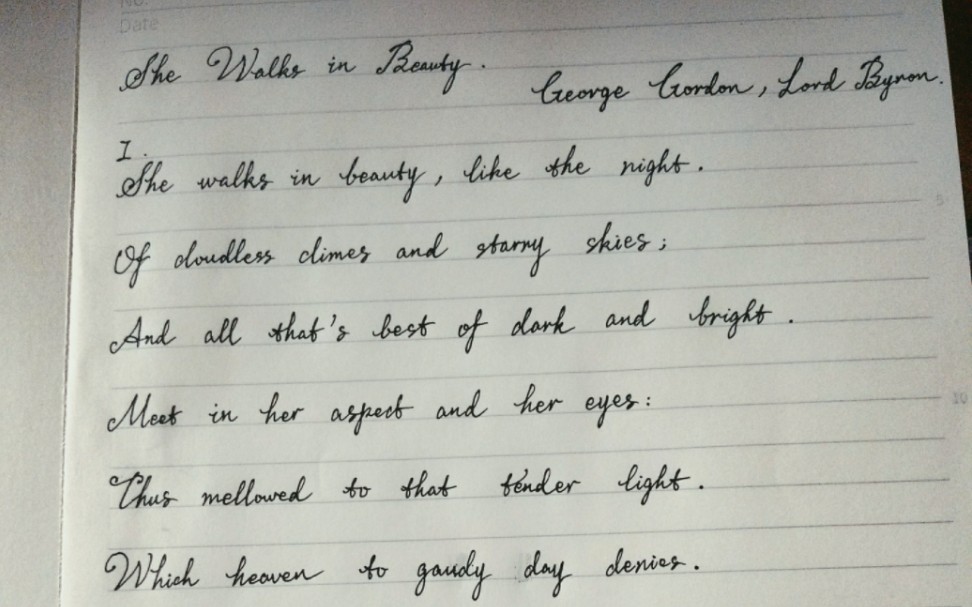 No.
Date
She Walks in Beauty.
George Gordon, Lord Byron.
I.
She walks in beauty, like the night.
Of cloudless climes and starry skies;
5
And all that's best of dark and bright.
Meet in her aspect and her eyes:
10
Thus mellowed to that tender light.
Which heaven to gaudy day denies.